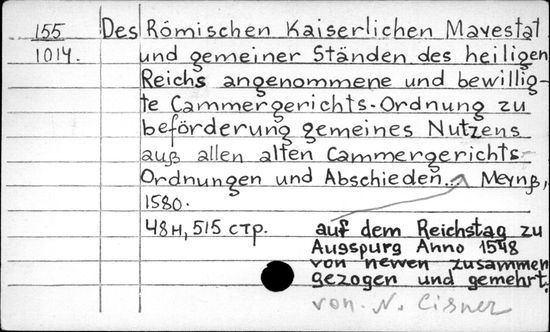 155
1014.
Des Römischen Kaiserlichen Mayestat
und gemeiner Ständen des heiligen
Reichs angenommene und bewillig-
te Cammergerichts-Ordnung zu
beförderung gemeines Nutzens
auß allen alten Cammergerichts-
Ordnungen und Abschieden... Meynß,
1580.
48н, 515 стр.
auf dem Reichstag zu
Augspurg Anno 1548
von newen zusammen
gezogen und gemehrt.
von N. Cisner